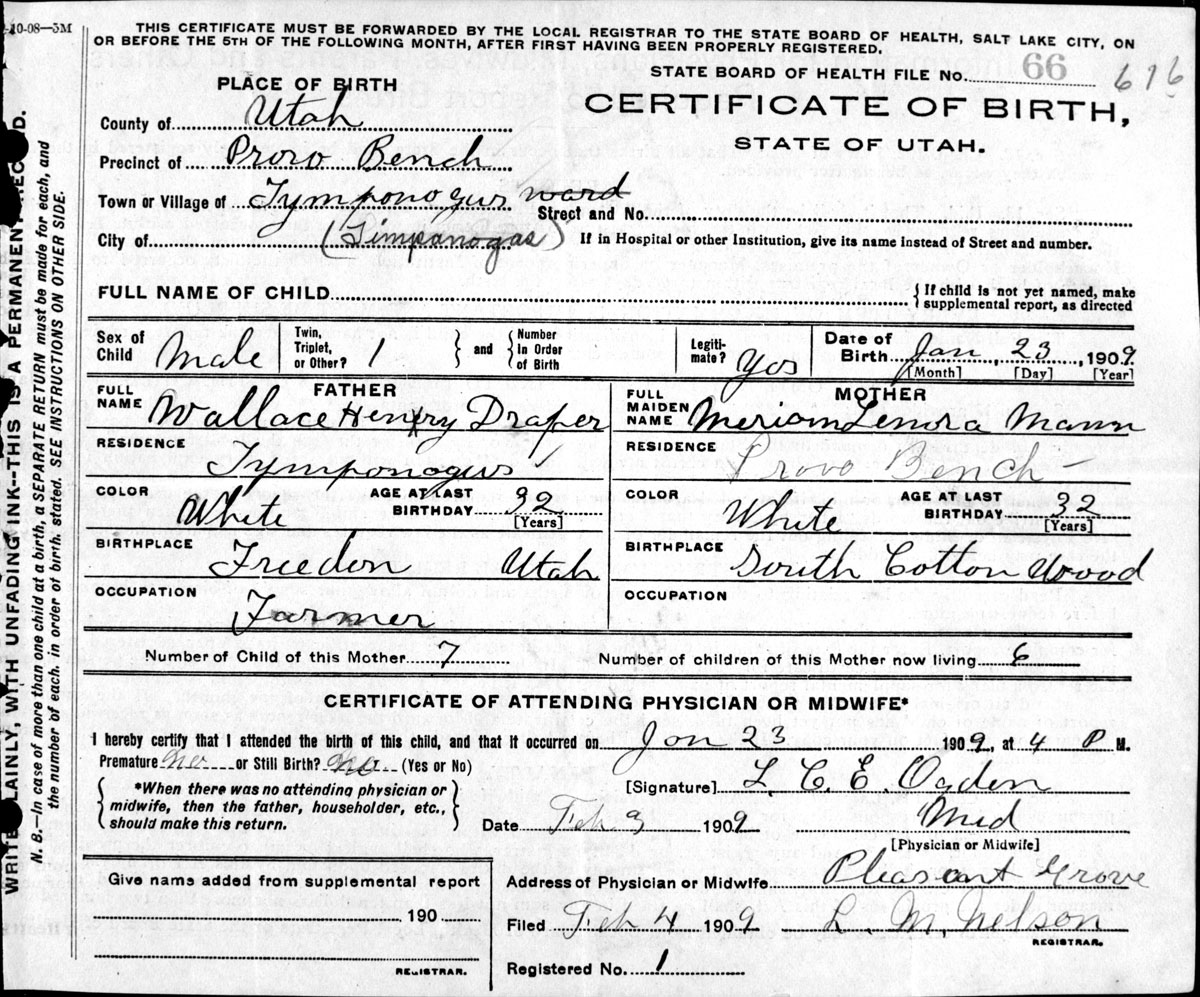 -10-08—5M
THIS CERTIFICATE MUST BE FORWARDED BY THE LOCAL REGISTRAR TO THE STATE BOARD OF HEALTH, SALT LAKE CITY, ON
OR BEFORE THE 5TH OF THE FOLLOWING MONTH, AFTER FIRST HAVING BEEN PROPERLY REGISTERED.
STATE BOARD OF HEALTH FILE No. 66 616
PLACE OF BIRTH
CERTIFICATE OF BIRTH,
STATE OF UTAH.
County of Utah
Precinct of Provo Bench
Town or Village of Tymponogus ward
Street and No.
City of (Timpanogas)
If in Hospital or other Institution, give its name instead of Street and number.
FULL NAME OF CHILD
{If child is not yet named, make
supplemental report, as directed
Sex of Child Male
Twin, Triplet, or Other? 1 } and { Number In Order of Birth
Legiti-mate? Yos
Date of Birth Jan, 23, 1909.
[Month] [Day] [Year]
FATHER
FULL NAME Wallace Henry Draper
RESIDENCE Tymponogus
COLOR White
AGE AT LAST BIRTHDAY 32
[Years]
BIRTHPLACE Freedon Utah
OCCUPATION Farmer
MOTHER
FULL MAIDEN NAME Meriom Lenora Mann
RESIDENCE Provo Bench
COLOR White
AGE AT LAST BIRTHDAY 32
[Years]
BIRTHPLACE South Cotton Wood
OCCUPATION
Number of Child of this Mother 7
Number of children of this Mother now living 6
CERTIFICATE OF ATTENDING PHYSICIAN OR MIDWIFE*
I hereby certify that I attended the birth of this child, and that it occurred on Jan 23 1909, at 4 P M.
Premature no or Still Birth? no. (Yes or No)
{ *When there was no attending physician or
midwife, then the father, householder, etc.,
should make this return. }
[Signature] L. C. E. Ogden
Date Feb 3 1909
Mid
[Physician or Midwife]
Give name added from supplemental report
190
REGISTRAR.
Address of Physician or Midwife Pleasant Grove
Filed Feb 4 1909 L. M. Nelson
REGISTRAR.
Registered No. 1
WRITE PLAINLY, WITH UNFADING INK—THIS IS A PERMANENT RECORD.
N. B.—In case of more than one child at a birth, a SEPARATE RETURN must be made for each, and
the number of each, in order of birth, stated. SEE INSTRUCTIONS ON OTHER SIDE.